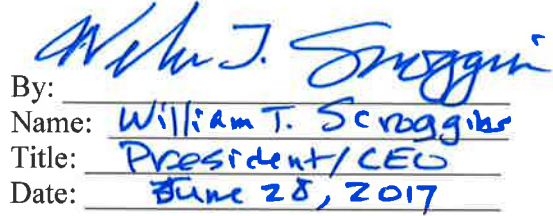 By: William T. Scroggins
Name: William T. Scroggins
Title: President/CEO
Date: June 28, 2017